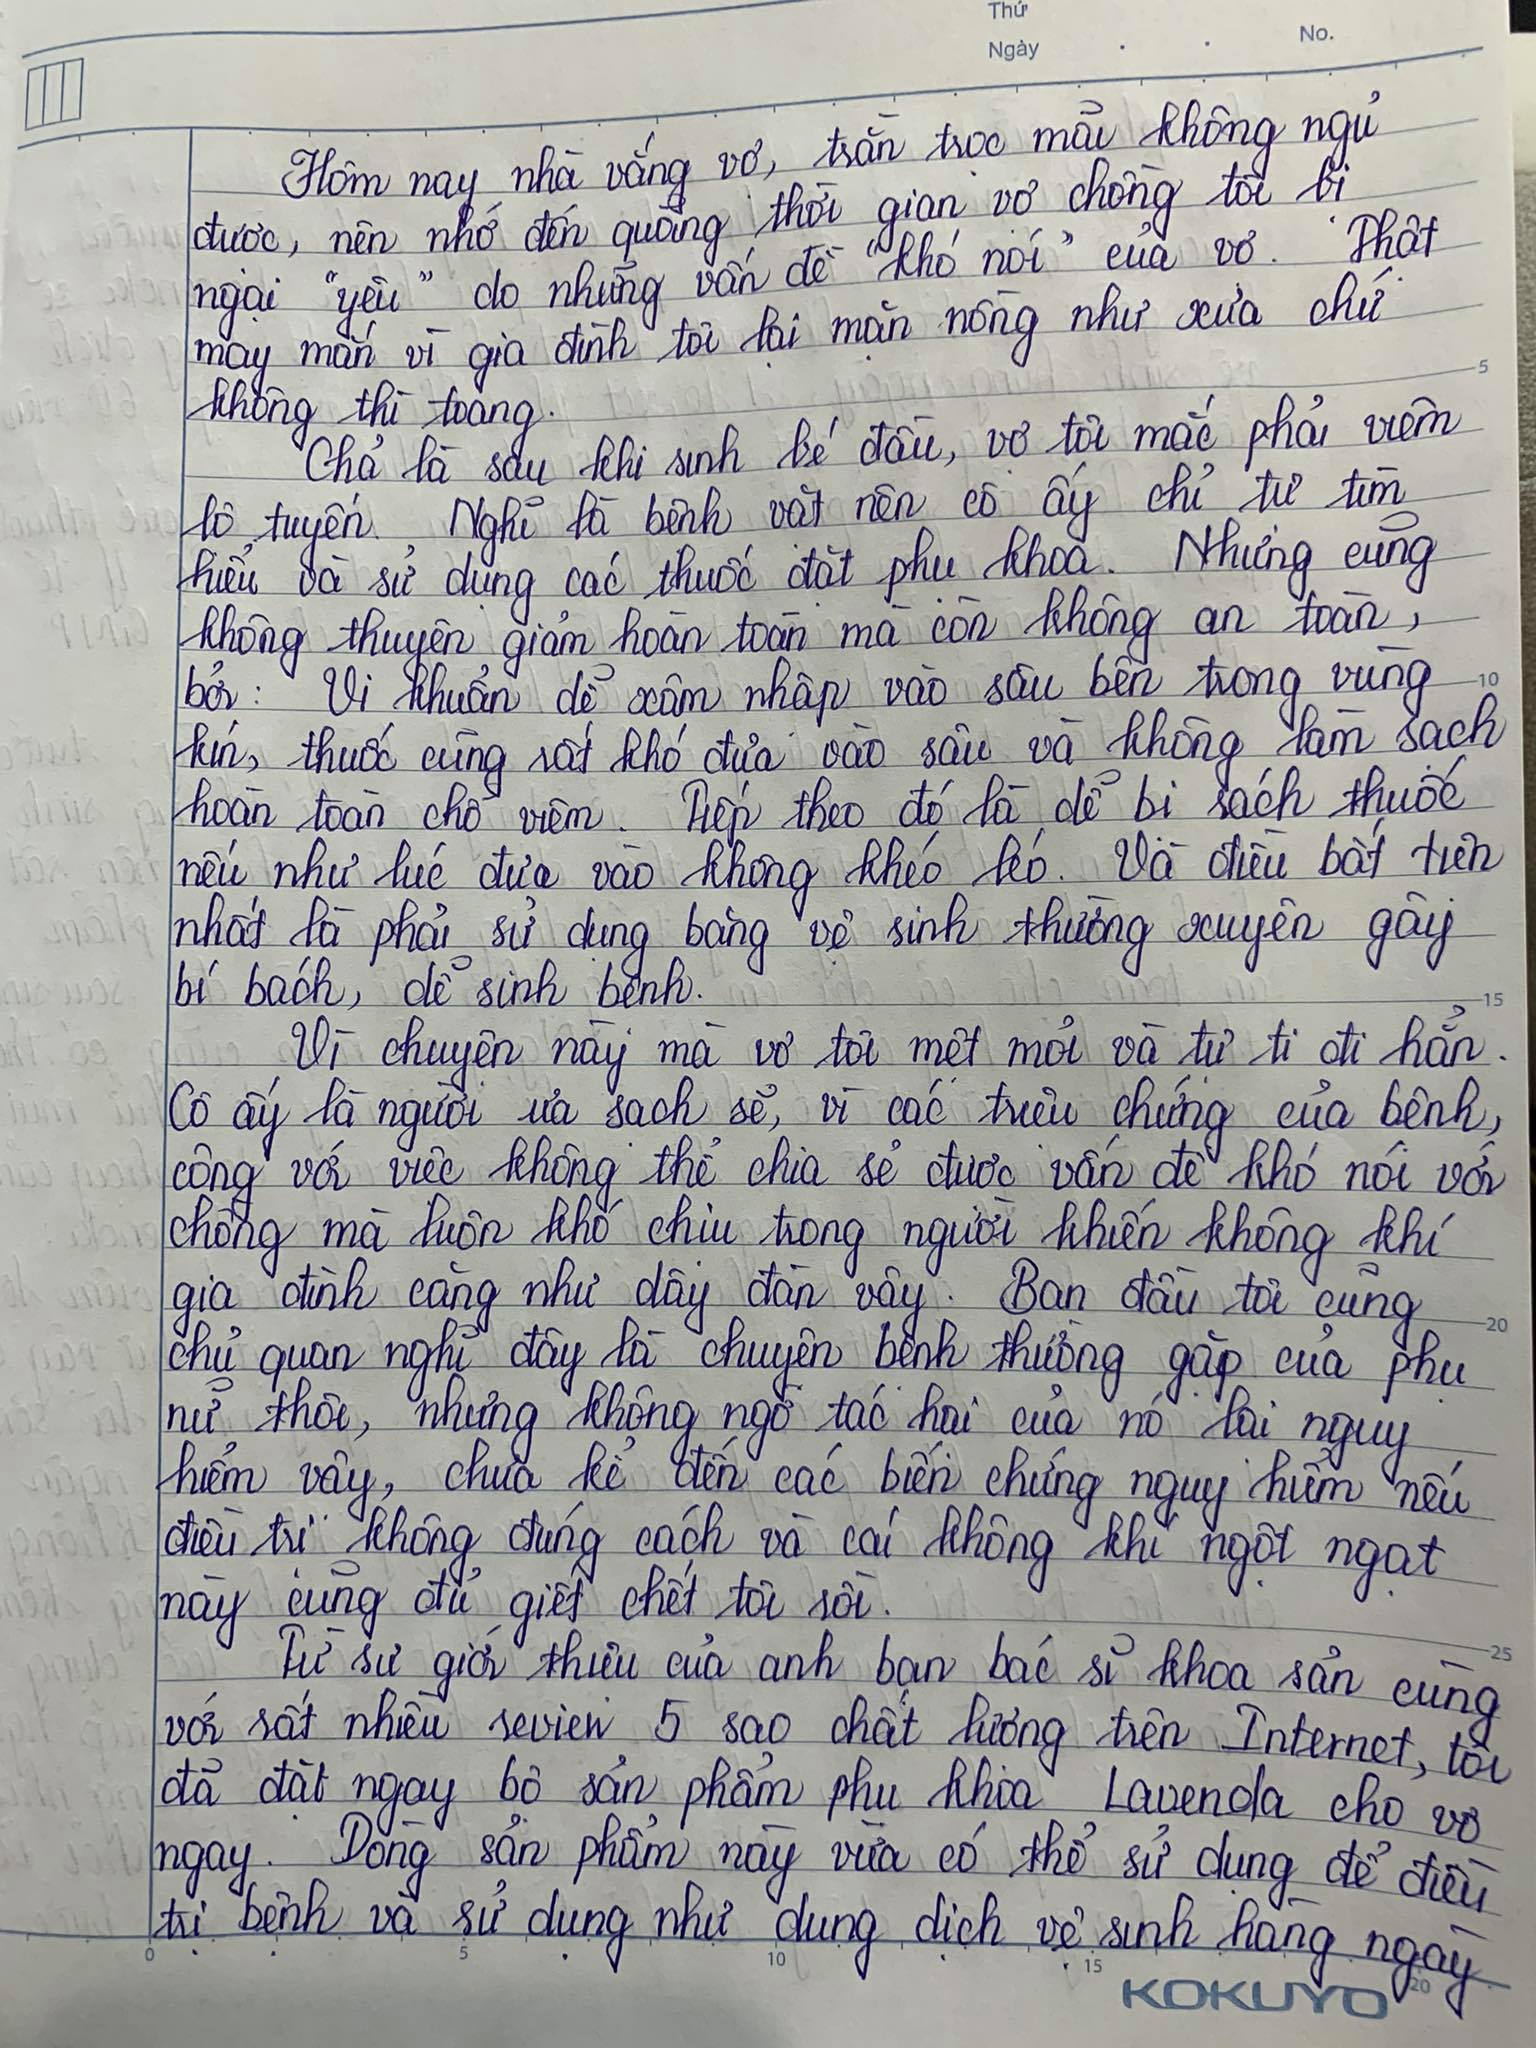 Thứ
Ngày . . No.
Hôm nay nhà vắng vợ, trằn trọc mãi không ngủ
được, nên nhớ đến quãng thời gian vợ chồng tôi bị
ngại "yêu" do những vấn đề "khó nói" của vợ. Thật
may mắn vì gia đình tôi lại mặn nồng như xưa chứ
không thì toang.
Chả là sau khi sinh bé đầu, vợ tôi mắc phải viêm
lộ tuyến. Nghĩ là bệnh vặt nên cô ấy chỉ tự tìm
hiểu và sử dụng các thuốc đặt phụ khoa. Nhưng cũng
không thuyên giảm hoàn toàn mà còn không an toàn,
bởi: Vi khuẩn dễ xâm nhập vào sâu bên trong vùng
kín, thuốc cũng rất khó đưa vào sâu và không làm sạch
hoàn toàn chỗ viêm. Tiếp theo đó là dễ bị rách thuốc
nếu như lúc đưa vào không khéo léo. Và điều bất tiện
nhất là phải sử dụng băng vệ sinh thường xuyên gây
bí bách, dễ sinh bệnh.
Vì chuyện này mà vợ tôi mệt mỏi và tự ti đi hẳn.
Cô ấy là người ưa sạch sẽ, vì các triệu chứng của bệnh,
cộng với việc không thể chia sẻ được vấn đề khó nói với
chồng mà luôn khó chịu trong người khiến không khí
gia đình căng như dây đàn vậy. Ban đầu tôi cũng
chủ quan nghĩ đây là chuyện bệnh thường gặp của phụ
nữ thôi, nhưng không ngờ tác hại của nó lại nguy
hiểm vậy, chưa kể đến các biến chứng nguy hiểm nếu
điều trị không đúng cách và cái không khí ngột ngạt
này cũng đủ giết chết tôi rồi.
Từ sự giới thiệu của anh bạn bác sĩ khoa sản cùng
với rất nhiều review 5 sao chất lượng trên Internet, tôi
đã đặt ngay bộ sản phẩm phụ khoa Lavenda cho vợ
ngay. Dòng sản phẩm này vừa có thể sử dụng để điều
trị bệnh và sử dụng như dung dịch vệ sinh hàng ngày
KOKUYO